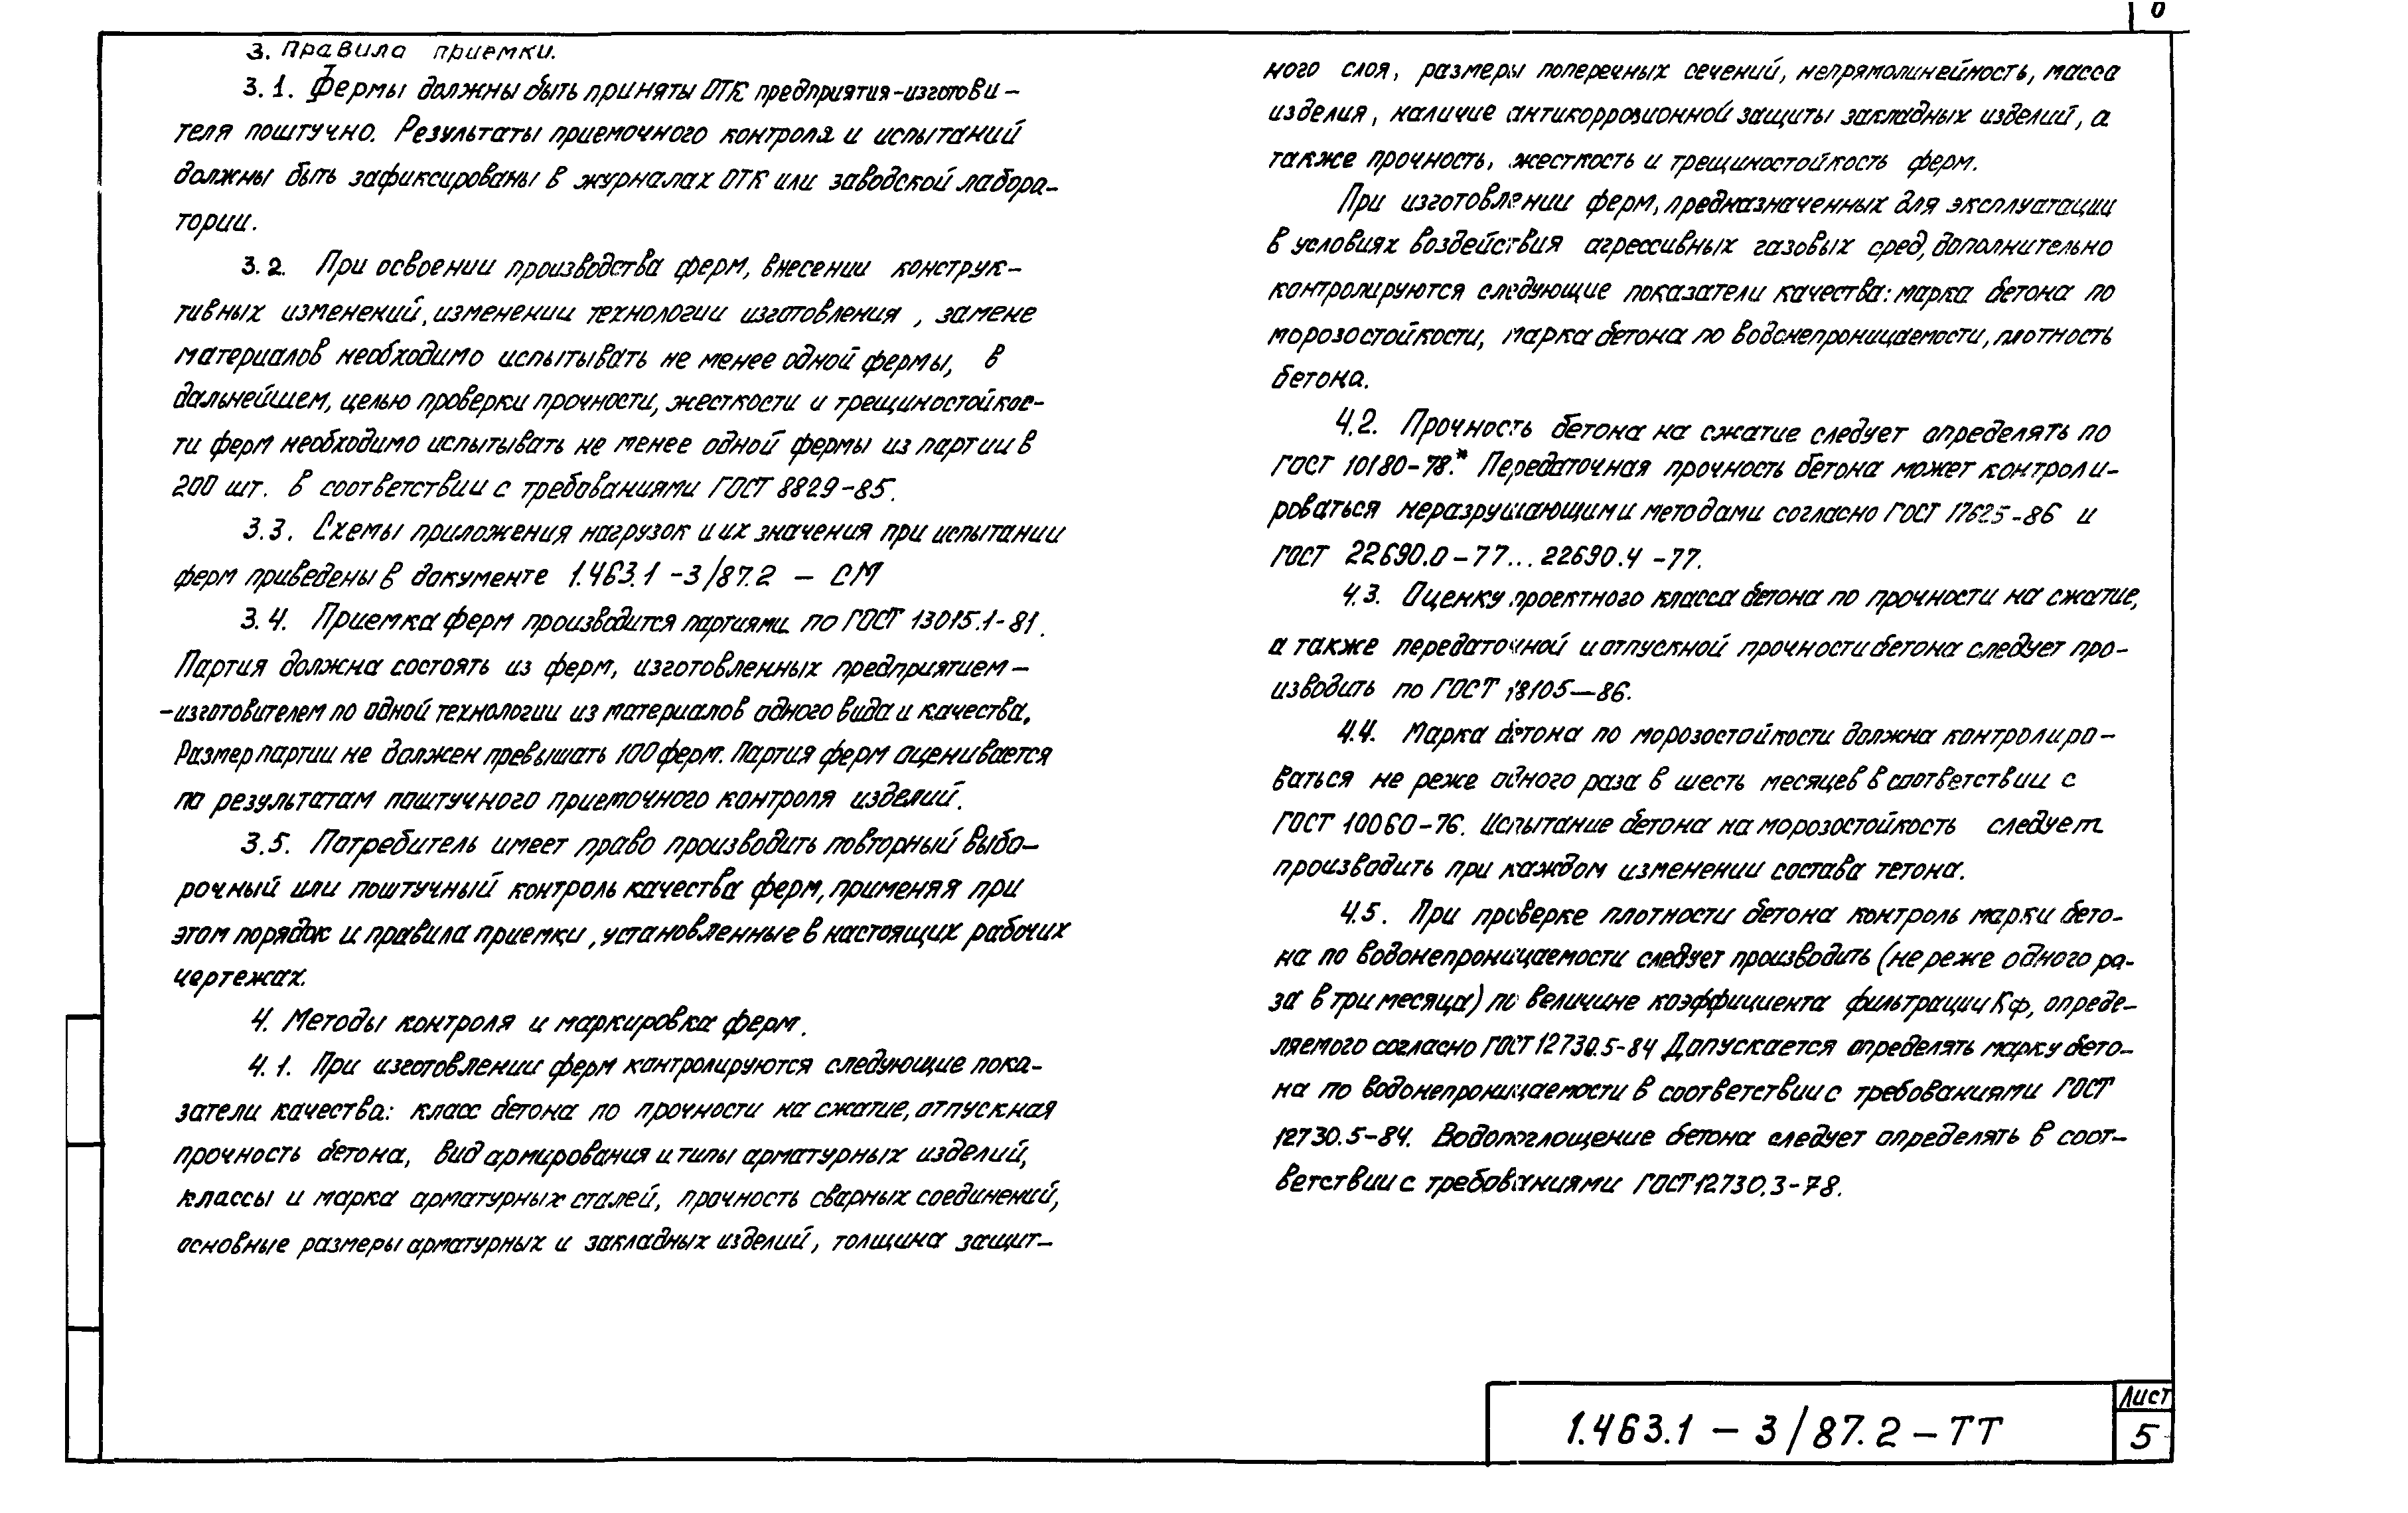 0
3. Правила приемки.
3.1. Фермы должны быть приняты ОТК предприятия-изготови-
теля поштучно. Результаты приемочного контроля и испытаний
должны быть зафиксированы в журналах ОТК или заводской лабора-
тории.
3.2. При освоении производства ферм, внесении конструк-
тивных изменений, изменении технологии изготовления, замене
материалов необходимо испытывать не менее одной фермы, в
дальнейшем, целью проверки прочности, жесткости и трещиностойкос-
ти ферм необходимо испытывать не менее одной фермы из партии в
200 шт. в соответствии с требованиями ГОСТ 8829-85.
3.3. Схемы приложения нагрузок и их значения при испытании
ферм приведены в документе 1.463.1-3/87.2 - СМ
3.4. Приемка ферм производится партиями по ГОСТ 13015.1-81.
Партия должна состоять из ферм, изготовленных предприятием-
-изготовителем по одной технологии из материалов одного вида и качества.
Размер партии не должен превышать 100 ферм. Партия ферм оценивается
по результатам поштучного приемочного контроля изделий.
3.5. Потребитель имеет право производить повторный выбо-
рочный или поштучный контроль качества ферм, применяя при
этом порядок и правила приемки, установленные в настоящих рабочих
чертежах.
4. Методы контроля и маркировка ферм.
4.1. При изготовлении ферм контролируются следующие пока-
затели качества: класс бетона по прочности на сжатие, отпускная
прочность бетона, вид армирования и типы арматурных изделий,
классы и марка арматурных сталей, прочность сварных соединений,
основные размеры арматурных и закладных изделий, толщина защит-
ного слоя, размеры поперечных сечений, непрямолинейность, масса
изделия, наличие антикоррозионной защиты закладных изделий, а
также прочность, жесткость и трещиностойкость ферм.
При изготовлении ферм, предназначенных для эксплуатации
в условиях воздействия агрессивных газовых сред, дополнительно
контролируются следующие показатели качества: марка бетона по
морозостойкости, марка бетона по водонепроницаемости, плотность
бетона.
4.2. Прочность бетона на сжатие следует определять по
ГОСТ 10180-78.* Передаточная прочность бетона может контроли-
роваться неразрушающими методами согласно ГОСТ 17625-86 и
ГОСТ 22690.0-77...22690.4-77.
4.3. Оценку проектного класса бетона по прочности на сжатие,
а также передаточной и отпускной прочности бетона следует про-
изводить по ГОСТ 18105-86.
4.4. Марка бетона по морозостойкости должна контролиро-
ваться не реже одного раза в шесть месяцев в соответствии с
ГОСТ 10060-76. Испытание бетона на морозостойкость следует
производить при каждом изменении состава тетона.
4.5. При проверке плотности бетона контроль марки бето-
на по водонепроницаемости следует производить (не реже одного ра-
за в три месяца) по величине коэффициента фильтрации Кф, опреде-
ляемого согласно ГОСТ 12730.5-84 Допускается определять марку бето-
на по водонепроницаемости в соответствии с требованиями ГОСТ
12730.5-84. Водопоглощение бетона следует определять в соот-
ветствии с требованиями ГОСТ 12730.3-78.
1.463.1 - 3/87.2 - ТТ
Лист
5